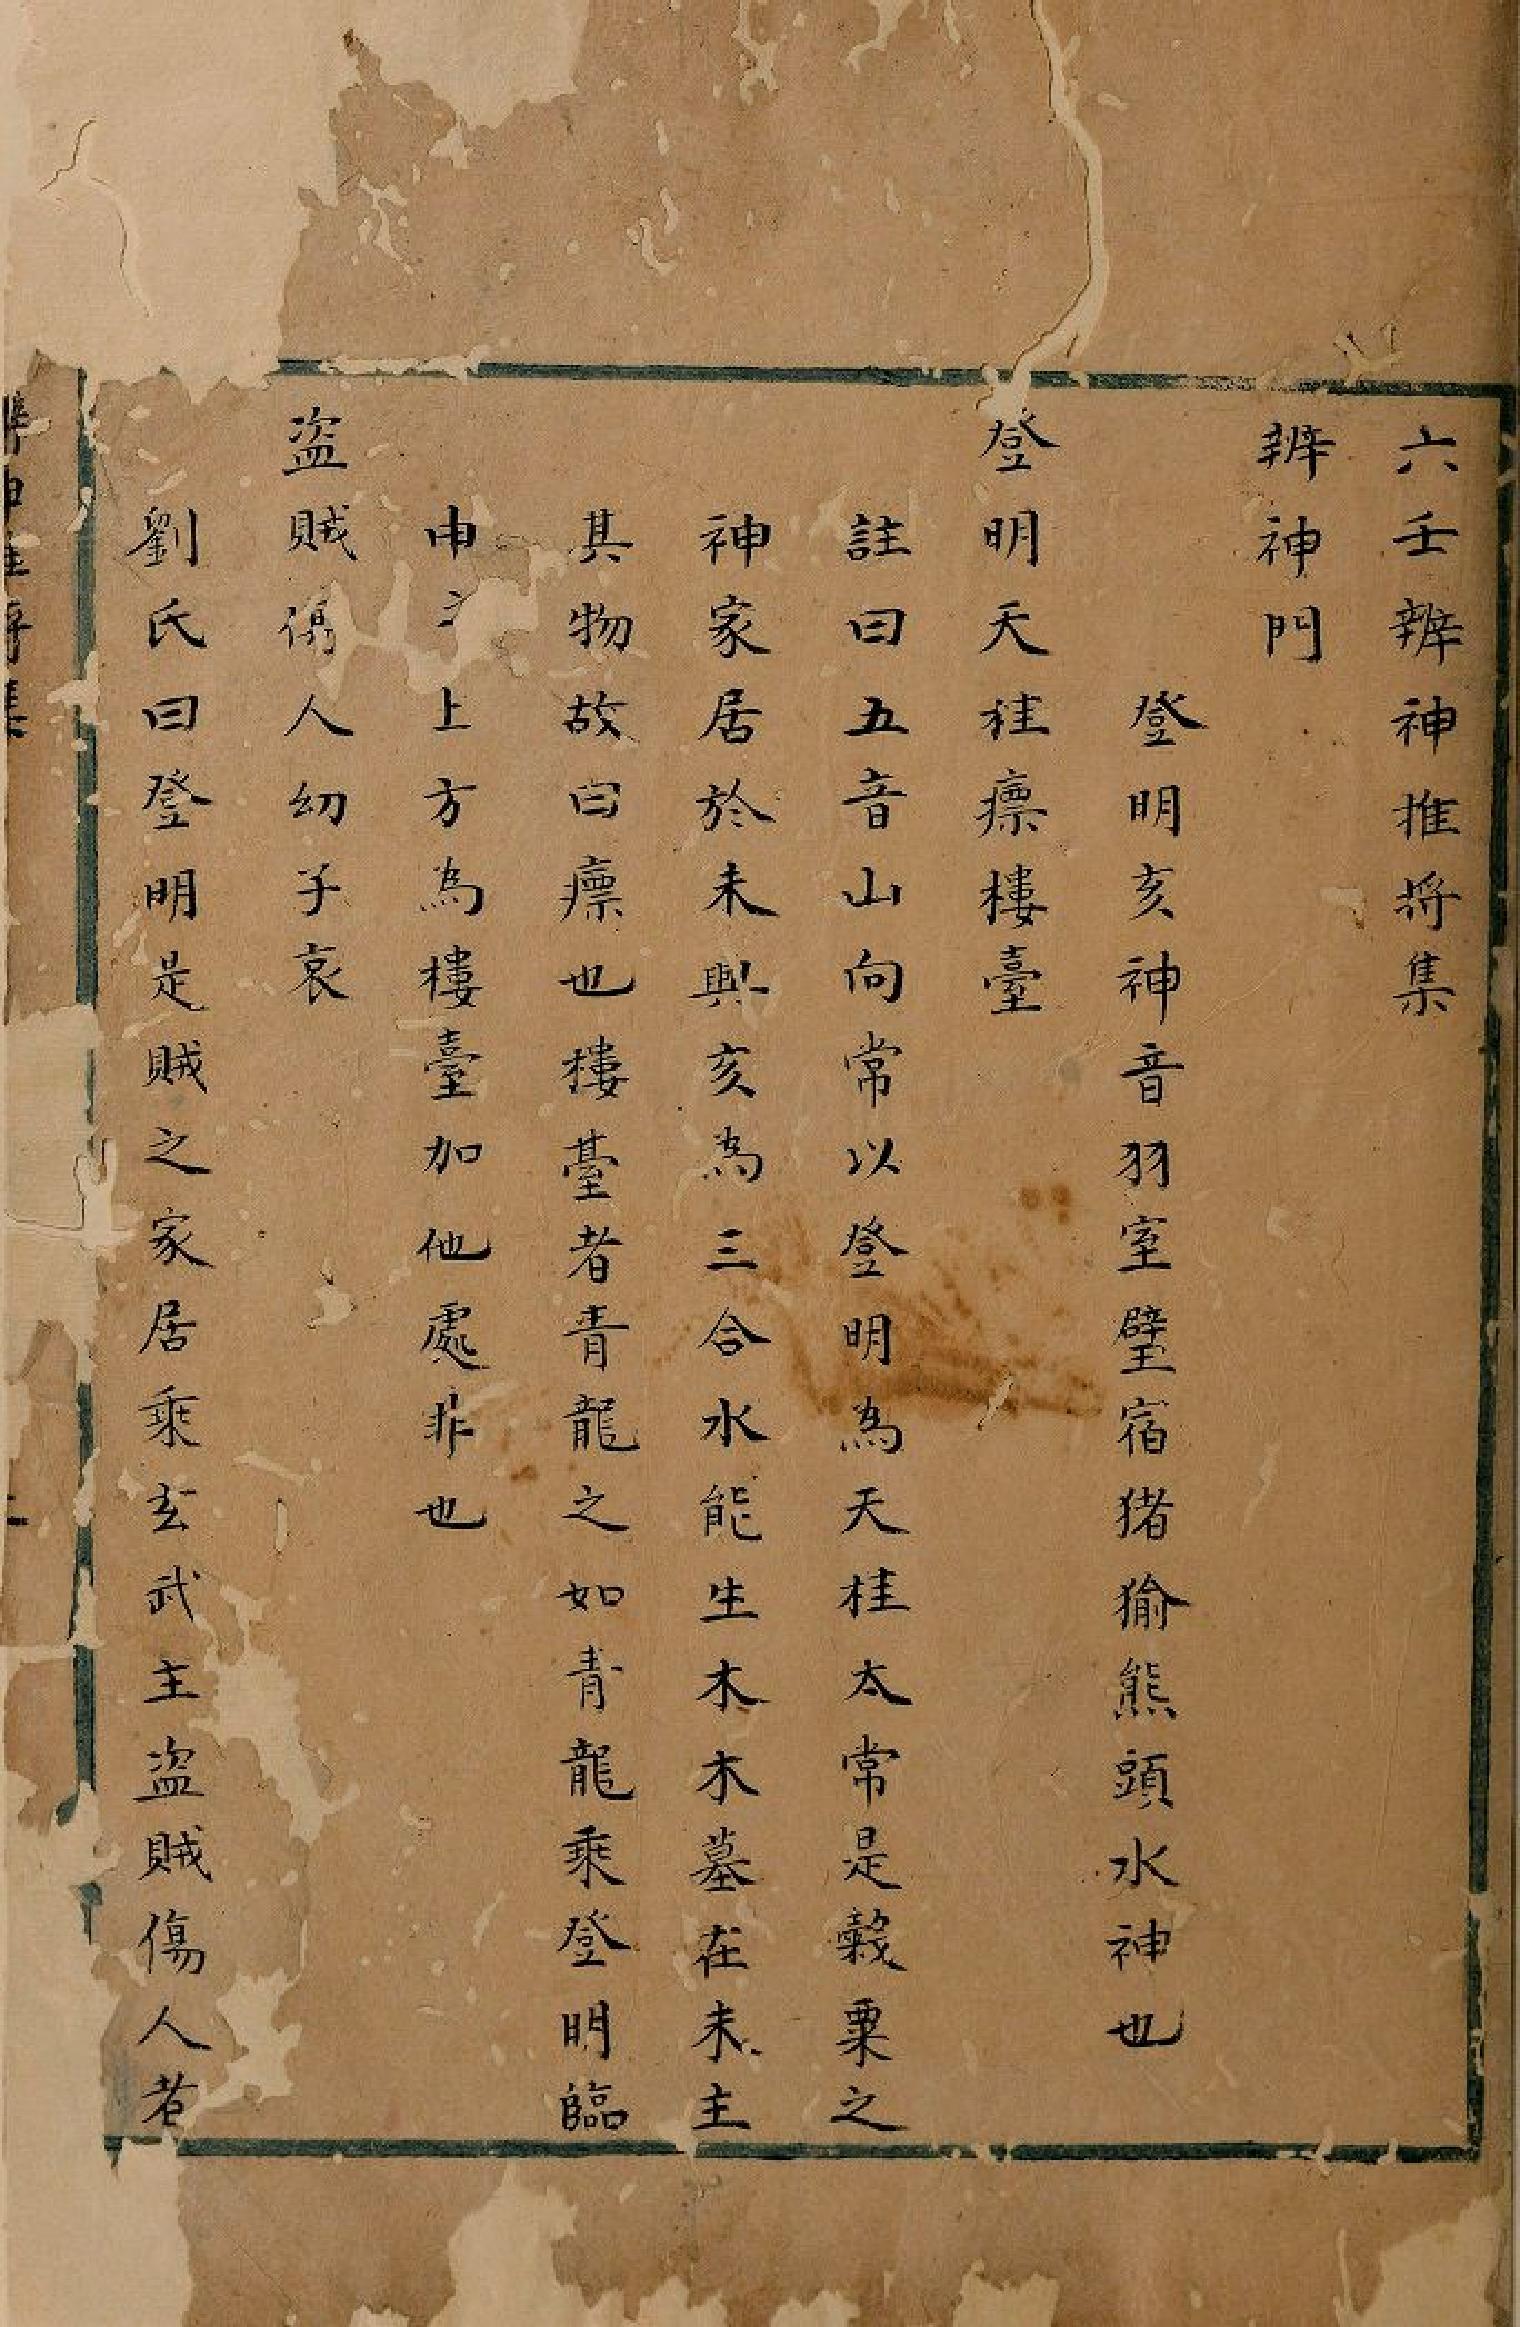 六壬辨神推將集
辨神門
登明亥神音羽室壁宿猪㺄熊頭水神也
登明天狂廩樓臺
註曰五音山向常以登明為天桂太常是穀粟之
神家居於未與亥為三合水能生木木墓在未主
其物故曰廩也樓臺者青龍之如青龍乘登明臨
申之上方為樓臺加他處非也
盜賊傷人幼子哀
劉氏曰登明是賊之家居乘玄武主盜賊傷人若